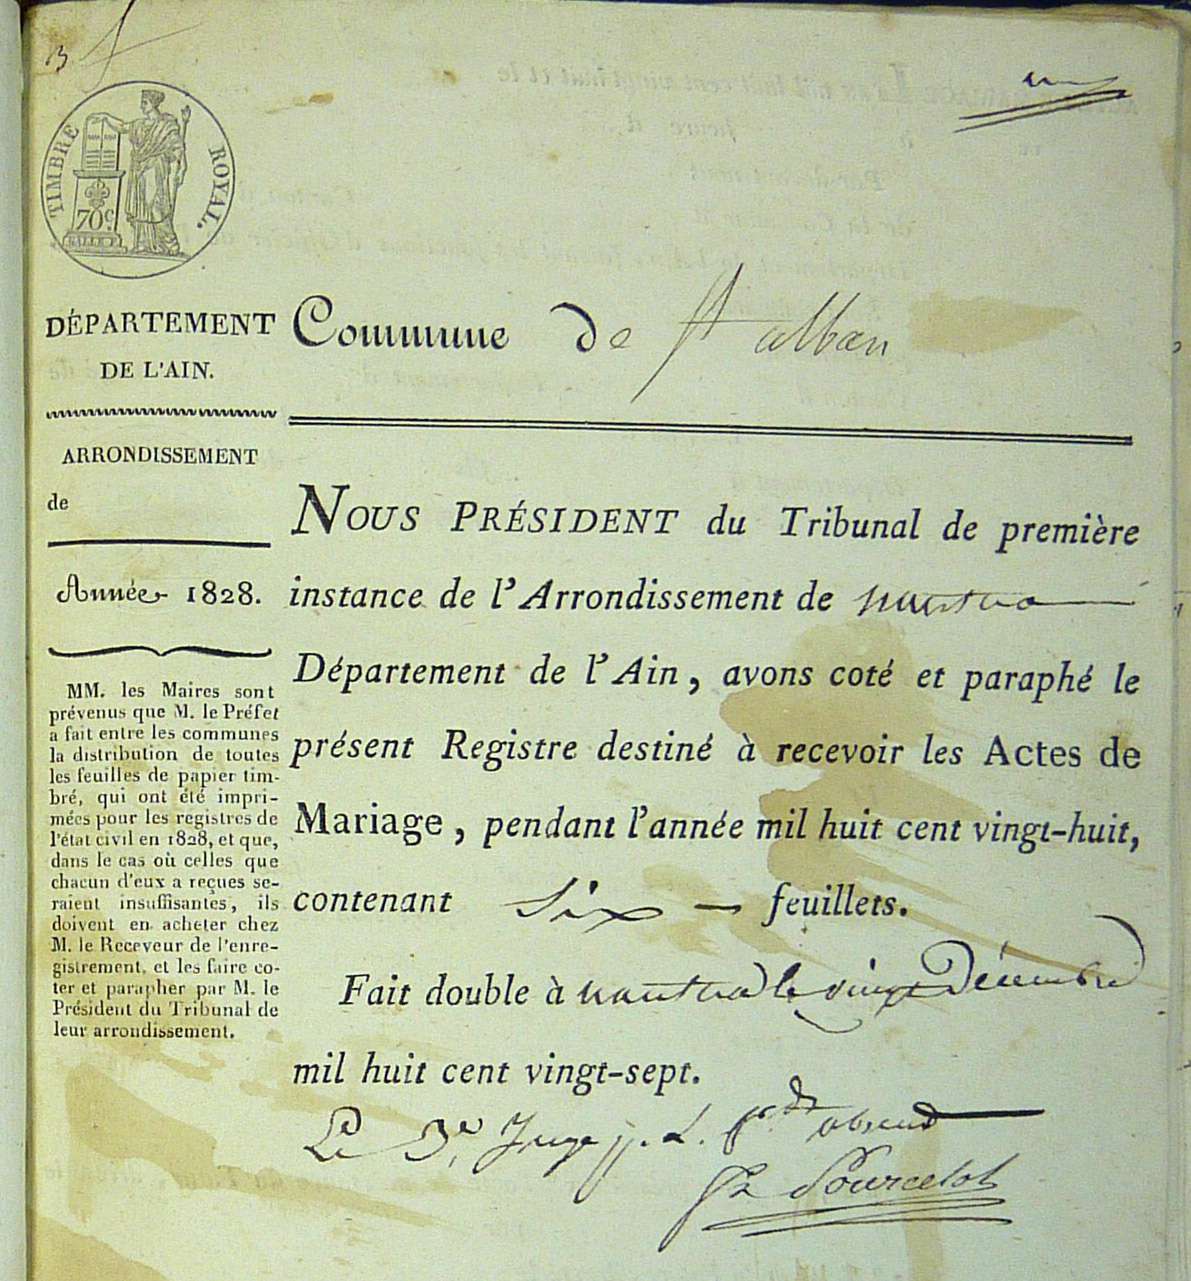 TIMBRE ROYAL.
70 c
DÉPARTEMENT
DE L'AIN.
ARRONDISSEMENT
de
Année 1828.
MM. les Maires sont
prévenus que M. le Préfet
a fait entre les communes
la distribution de toutes
les feuilles de papier tim-
bré, qui ont été impri-
mées pour les registres de
l'état civil en 1828, et que,
dans le cas où celles que
chacun d'eux a reçues se-
raient insuffisantes, ils
doivent en acheter chez
M. le Receveur de l'enre-
gistrement, et les faire co-
ter et parapher par M. le
Président du Tribunal de
leur arrondissement.
Commune de St alban
NOUS PRÉSIDENT du Tribunal de première
instance de l'Arrondissement de nantua
Département de l'Ain, avons coté et paraphé le
présent Registre destiné à recevoir les Actes de
Mariage, pendant l'année mil huit cent vingt-huit,
contenant Six feuillets.
Fait double à nantua le vingt Décembre
mil huit cent vingt-sept.
Le Juge absent
Pourcelot